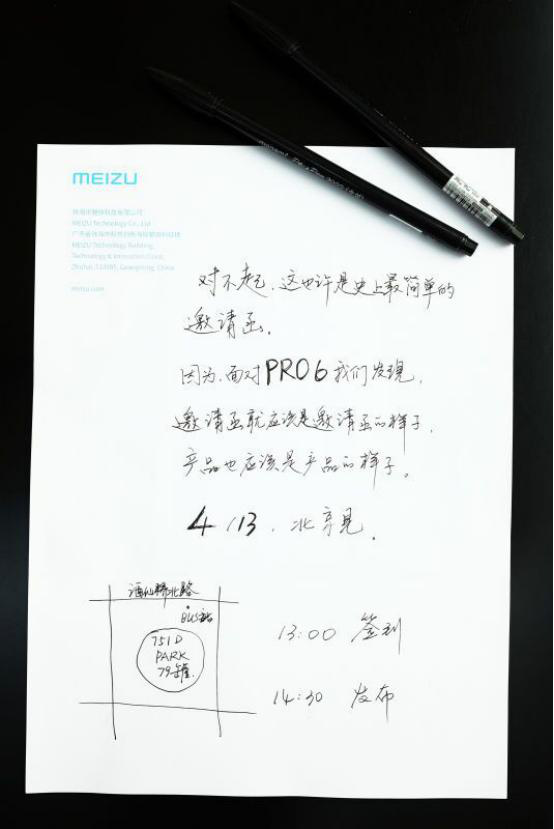 MEIZU
珠海市魅族科技有限公司
MEIZU Technology Co., Ltd
MEIZU Technology Building,
Technology & Innovation Coast,
Zhuhai, 519085, Guangdong, China
meizu.com
对不起,这也许是史上最简单的
邀请函。
因为,面对PRO6我们发现,
邀请函就应该是邀请函的样子,
产品也应该是产品的样子。
4/13,北京见。
酒仙桥北路
BUS站
751D
PARK
79罐
13:00 签到
14:30 发布